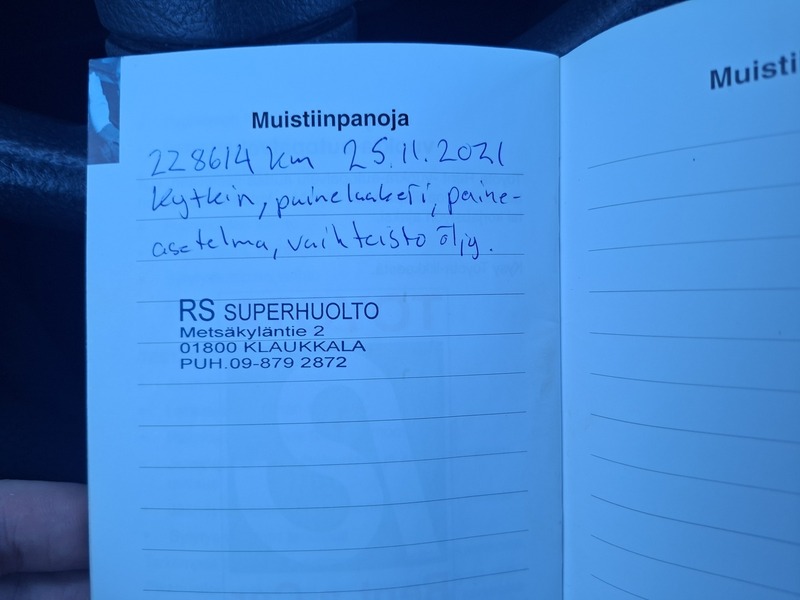 Muistiinpanoja
228614 km 25.11.2021
Kytkin, painelaakeri, paine-
asetelma, vaihteisto öljy.
RS SUPERHUOLTO
Metsäkyläntie 2
01800 KLAUKKALA
PUH.09-879 2872
Muisti